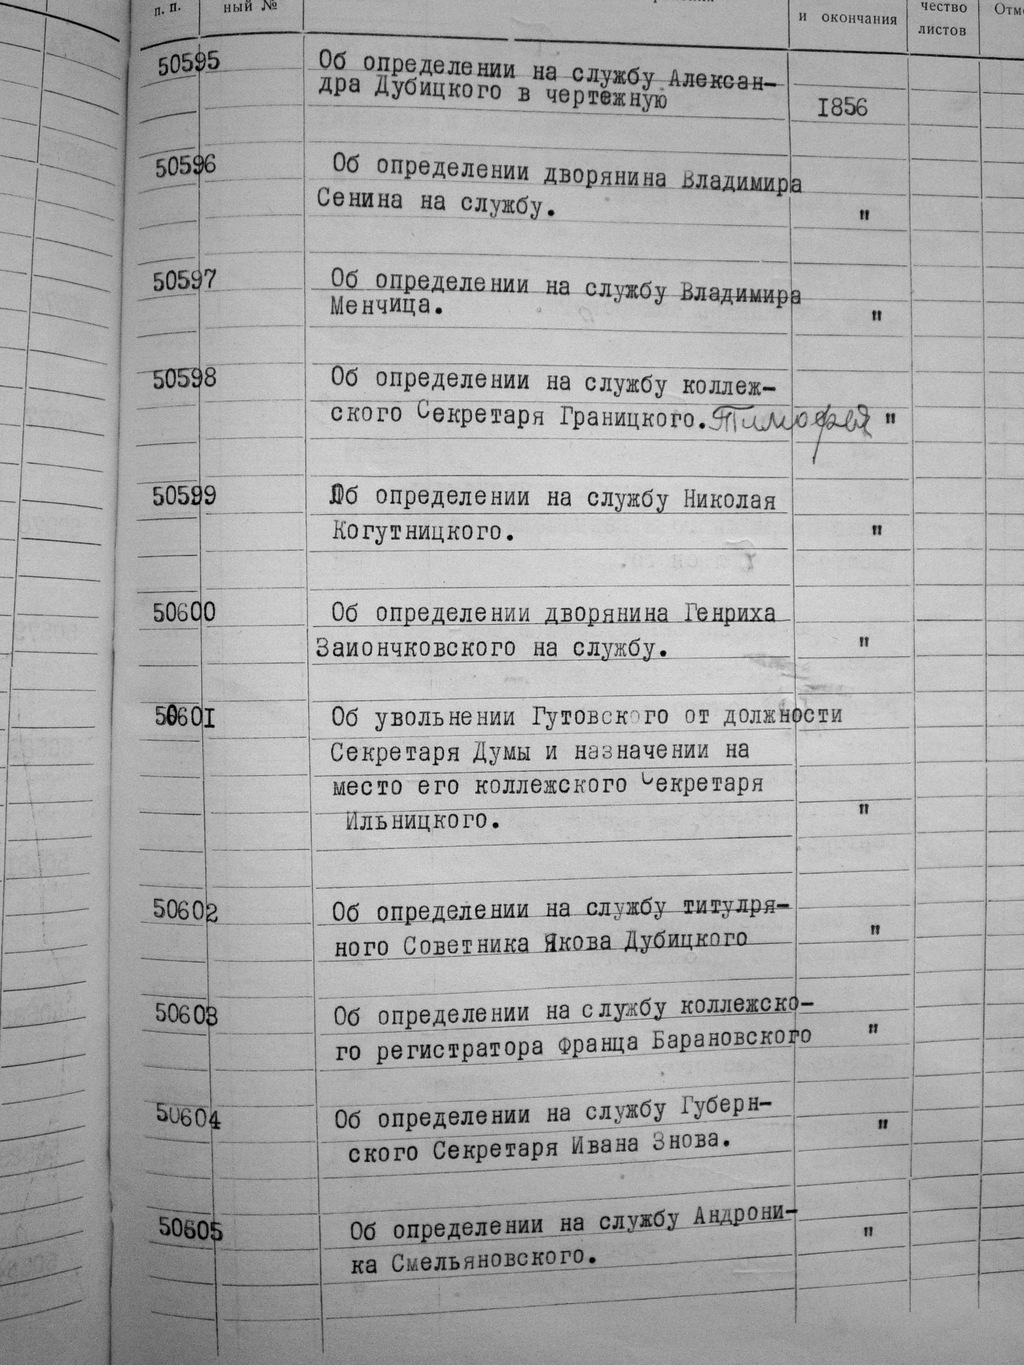 п. п. ный № и окончания чество листов
50595 Об определении на службу Алексан-
дра Дубицкого в чертежную 1856
50596 Об определении дворянина Владимира
Сенина на службу. "
50597 Об определении на службу Владимира
Менчица. "
50598 Об определении на службу коллеж-
ского Секретаря Границкого. Тимофея "
50599 Об определении на службу Николая
Когутницкого. "
50600 Об определении дворянина Генриха
Заиончковского на службу. "
50601 Об увольнении Гутовского от должности
Секретаря Думы и назначении на
место его коллежского Секретаря
Ильницкого. "
50602 Об определении на службу титулря-
ного Советника Якова Дубицкого "
50603 Об определении на службу коллежско-
го регистратора Франца Барановского "
50604 Об определении на службу Губерн-
ского Секретаря Ивана Знова. "
50605 Об определении на службу Андрони-
ка Смельяновского. "